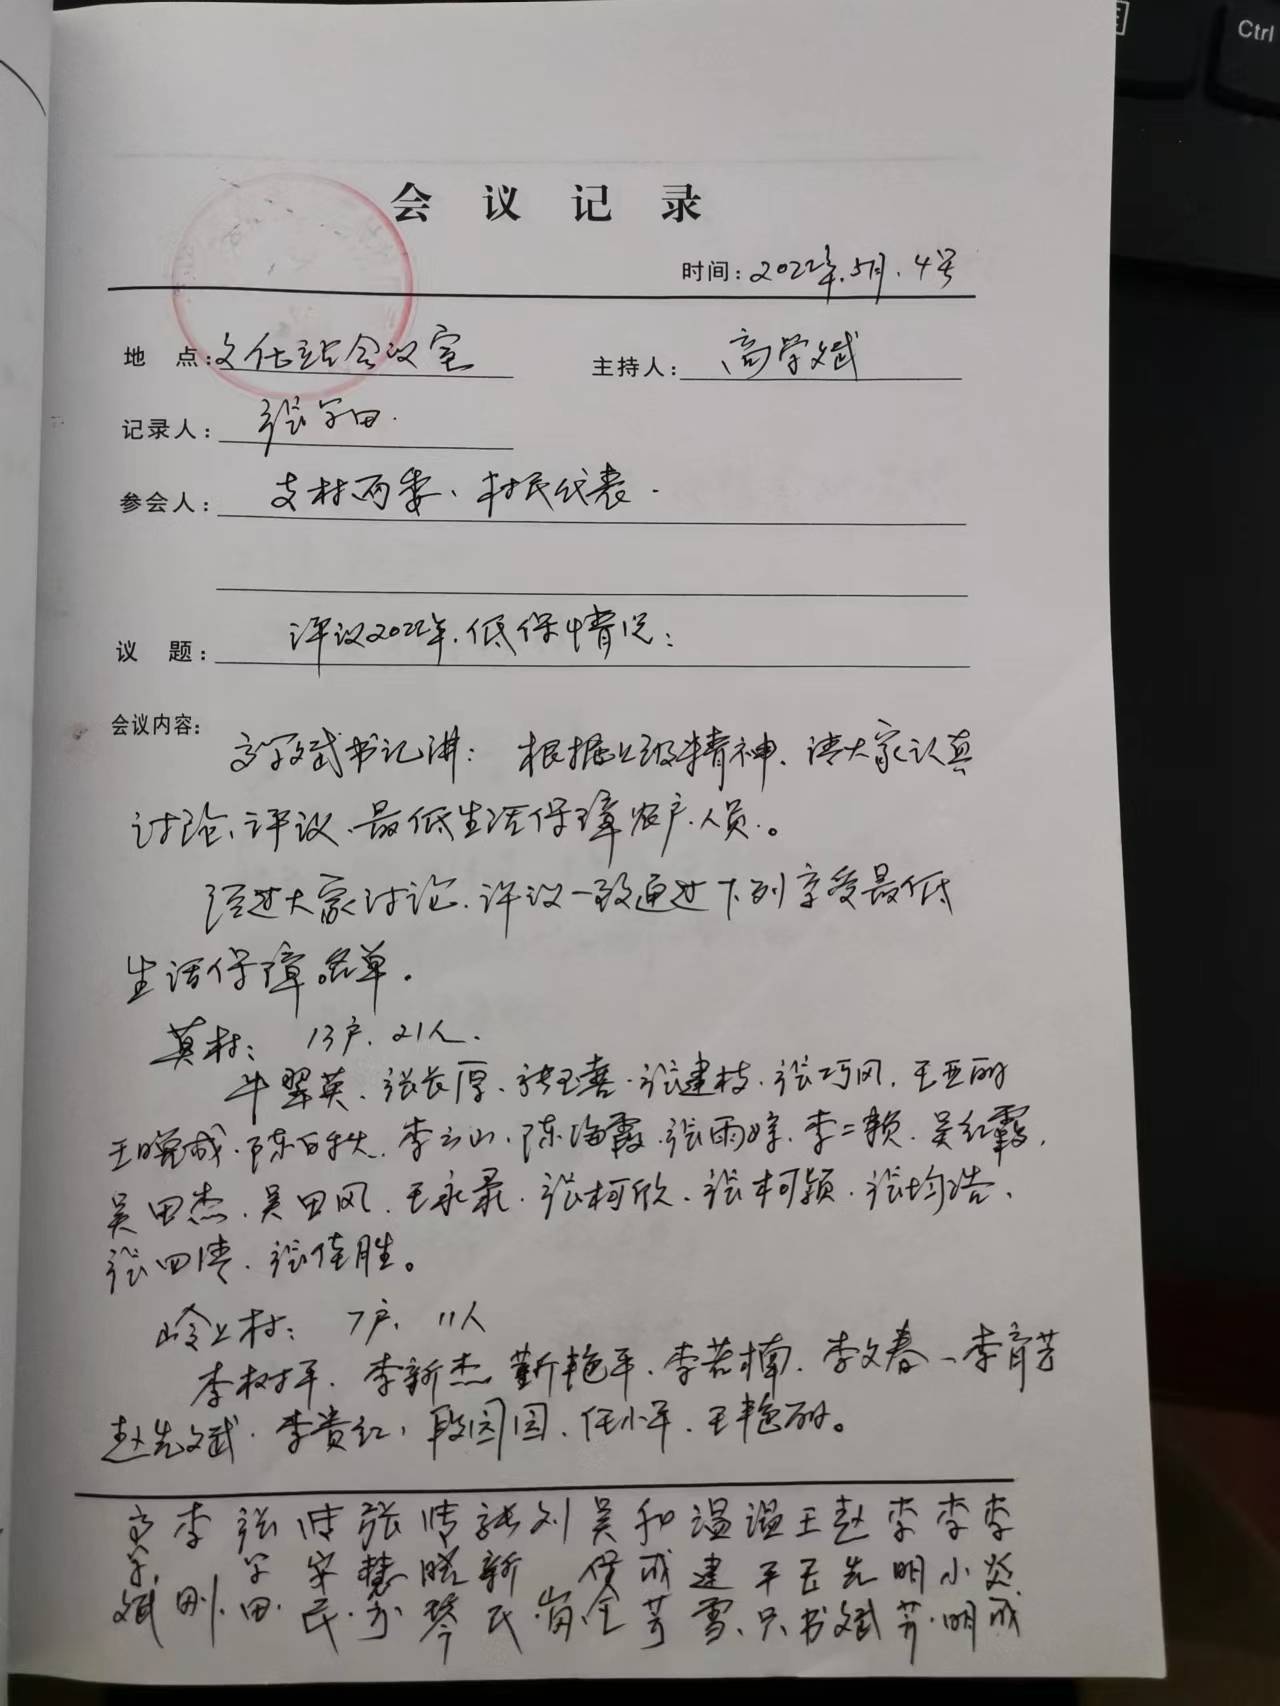 Ctrl
会议记录
时间：2022年.5月.4号
地点：文化站会议室 主持人：高学斌
记录人：张学田.
参会人：支村两委、村民代表.
议题：评议2022年.低保情况：
会议内容：
高学斌书记讲：根据上级精神、请大家认真
讨论、评议、最低生活保障农户、人员.。
经过大家讨论.评议一致通过下列享受最低
生活保障名单.
莫村：13户.21人.
牛翠英、张长厚、张玉喜.张建枝.张巧风.王亚丽
王晓成.陈百秩.李云山.陈海霞.张雨婷.李二赖.吴红霞.
吴田杰.吴田风.王永录.张柯欣.张柯颖.张均浩、
张四清.张佳胜。
岭上村：7户.11人
李树平.李新杰 靳艳平.李若楠.李文春、李育芳
赵先斌.李贵红、段园园.任小平.王艳丽。
高学斌 李刚. 张学田. 宋民. 张慧方 晓琴 张新民. 刘岗. 吴俊全 和成芳 温建雪. 温平只 王玉书 赵先斌 李明芳. 李小明 李炎成